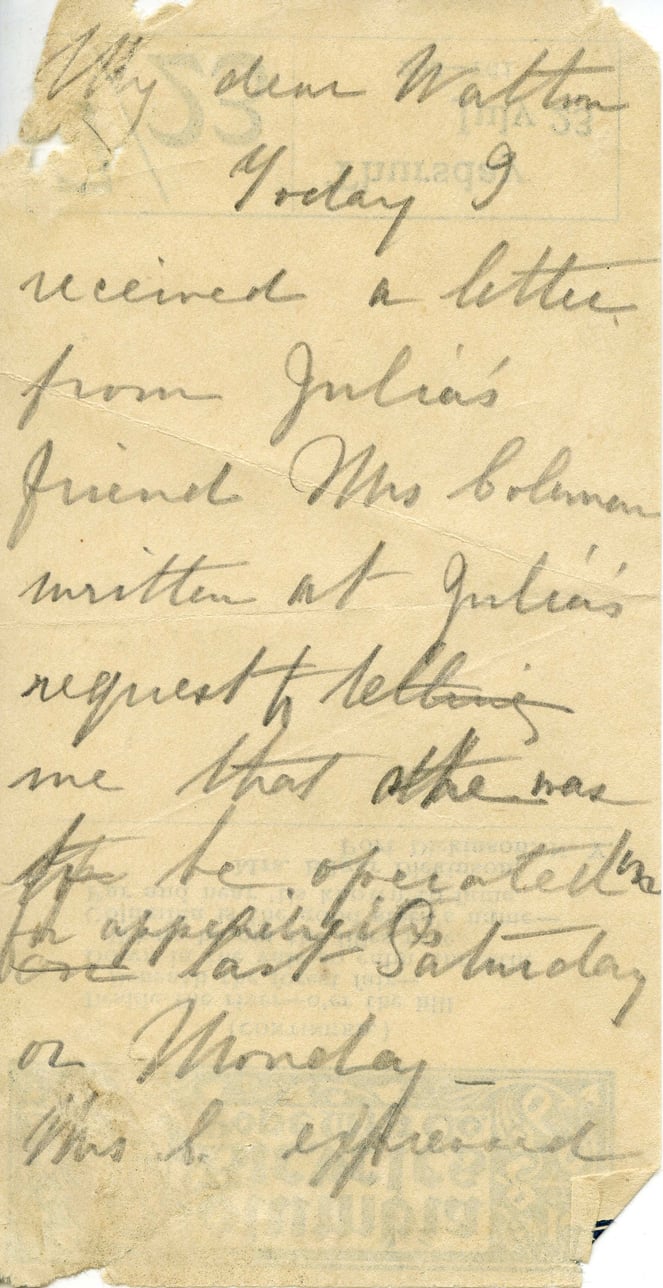 My dear Walton
Today I
received a letter
from Julia's
friend Mrs Coleman
written at Julia's
request telling
me that she was
to be operated on
for appendicitis
last Saturday
or Monday –
Mrs C. expressed